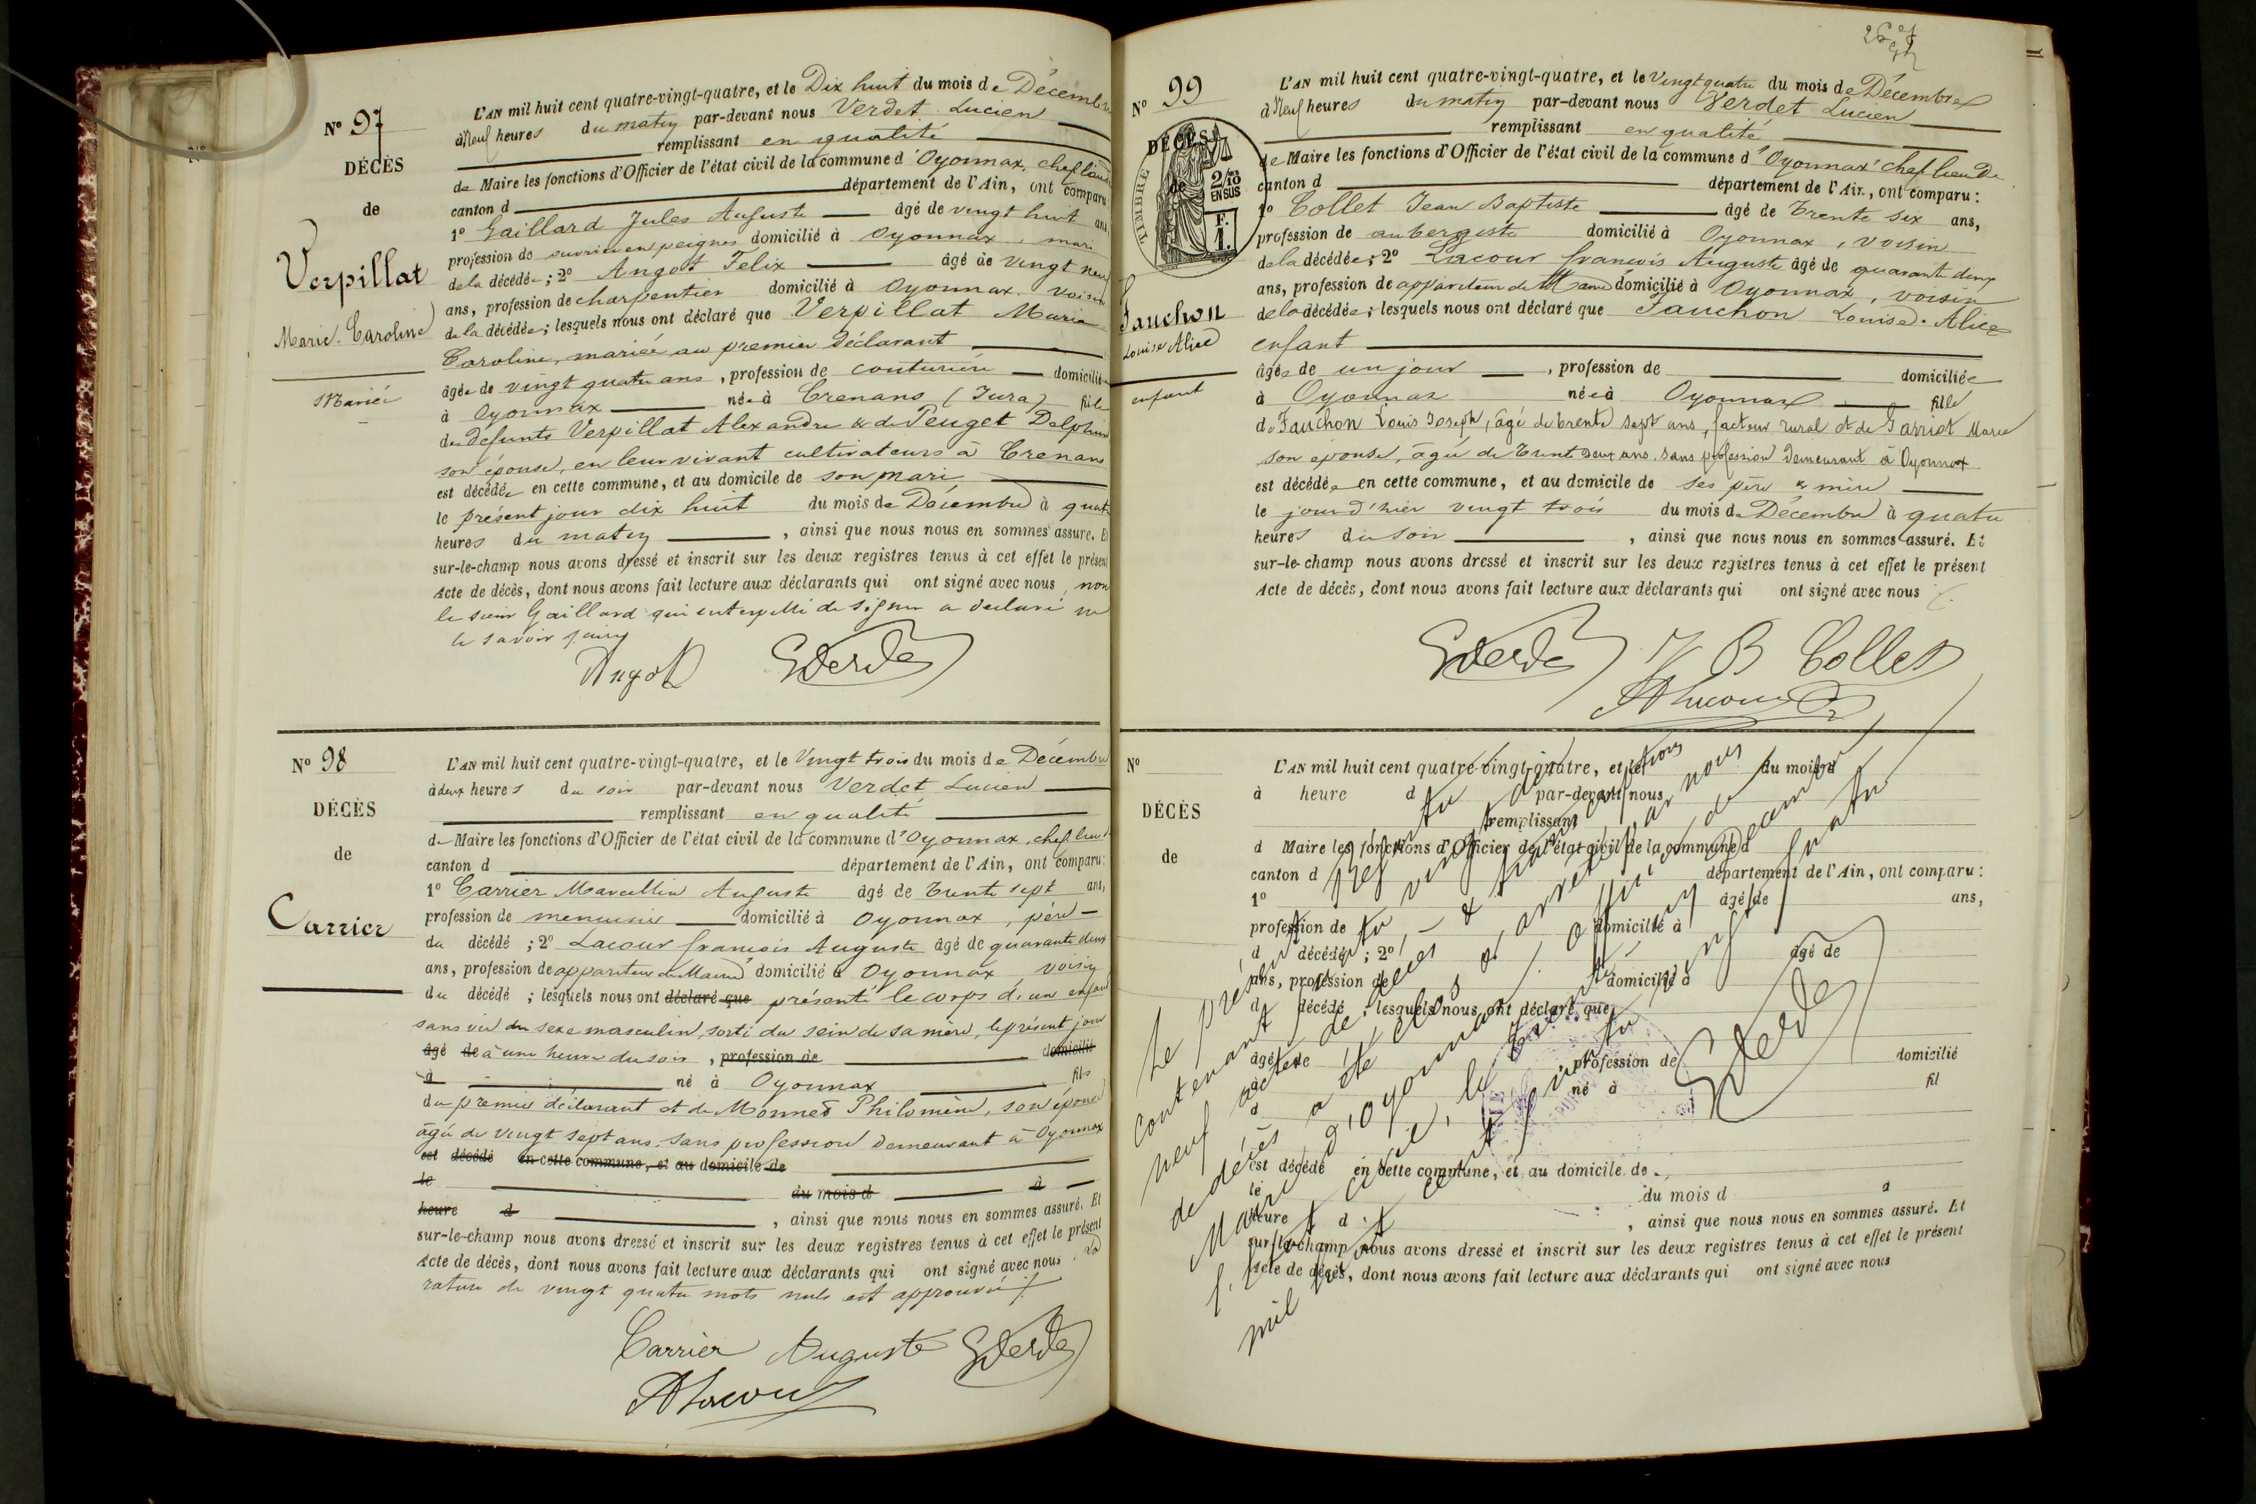 N° 97
DÉCÈS
de
Verpillat
Marie Caroline
Mariée
L'AN mil huit cent quatre-vingt-quatre, et le Dix huit du mois de Décembre
à Neuf heures du matin par-devant nous Verdet Lucien
remplissant en qualité
de Maire les fonctions d'Officier de l'état civil de la commune d'Oyonnax, chef lieu de
canton d département de l'Ain, ont comparu
1° Gaillard Jules Auguste âgé de vingt huit ans,
profession de ouvrier en peignes domicilié à Oyonnax, mari
de la décédée ; 2° Angot Felix âgé de vingt neuf
ans, profession de charpentier domicilié à Oyonnax voisin
de la décédée ; lesquels nous ont déclaré que Verpillat Marie
Caroline, mariée au premier déclarant
âgée de vingt quatre ans, profession de couturière domiciliée
à Oyonnax née à Crenans (Jura) fille
des défunts Verpillat Alexandre & de Peuget Delphine
son épouse, en leur vivant cultivateurs à Crenans
est décédée en cette commune, et au domicile de son mari
le présent jour dix huit du mois de Décembre à quatre
heures du matin, ainsi que nous nous en sommes assuré. Et
sur-le-champ nous avons dressé et inscrit sur les deux registres tenus à cet effet le présent
Acte de décès, dont nous avons fait lecture aux déclarants qui ont signé avec nous, non
le sieur Gaillard qui interpellé de signer a déclaré ne
le savoir faire
Angot GVerdet
N° 98
DÉCÈS
de
Carrier
L'AN mil huit cent quatre-vingt-quatre, et le Vingt trois du mois de Décembre
à deux heures du soir par-devant nous Verdet Lucien
remplissant en qualité
de Maire les fonctions d'Officier de l'état civil de la commune d'Oyonnax, chef lieu de
canton d département de l'Ain, ont comparu :
1° Carrier Marcellin Auguste âgé de trente sept ans,
profession de menuisier domicilié à Oyonnax, père
du décédé ; 2° Lacour françois Auguste âgé de quarante deux
ans, profession de appariteur de Mairie domicilié à Oyonnax voisin
du décédé ; lesquels nous ont déclaré que présenté le corps d'un enfant
sans vie du sexe masculin, sorti du sein de sa mère, le présent jour
âgé de à une heure du soir, profession de domicilié
à né à Oyonnax fils
du premier déclarant et de Monnet Philomène, son épouse
âgée de vingt sept ans, sans profession demeurant à Oyonnax
est décédé en cette commune, et au domicile de
le du mois d à
heure d, ainsi que nous nous en sommes assuré. Et
sur-le-champ nous avons dressé et inscrit sur les deux registres tenus à cet effet le présent
Acte de décès, dont nous avons fait lecture aux déclarants qui ont signé avec nous. La
rature de vingt quatre mots nuls est approuvée
Carrier Auguste GVerdet
ALacour
N° 99
DÉCÈS
de
TIMBRE
2/10 EN SUS
F. 1.
Fauchon
Louise Alice
enfant
L'AN mil huit cent quatre-vingt-quatre, et le Vingt quatre du mois de Décembre
à Neuf heures du matin par-devant nous Verdet Lucien
remplissant en qualité
de Maire les fonctions d'Officier de l'état civil de la commune d'Oyonnax chef lieu de
canton d département de l'Ain, ont comparu :
1° Collet Jean Baptiste âgé de Trente six ans,
profession de aubergiste domicilié à Oyonnax, voisin
de la décédée ; 2° Lacour françois Auguste âgé de quarante deux
ans, profession de appariteur de Mairie domicilié à Oyonnax, voisin
de la décédée ; lesquels nous ont déclaré que Fauchon Louise Alice
enfant
âgée de un jour, profession de domiciliée
à Oyonnax née à Oyonnax fille
de Fauchon Louis Joseph, âgé de trente sept ans, facteur rural et de Marie
son épouse, âgée de trente deux ans, sans profession demeurant à Oyonnax
est décédée en cette commune, et au domicile de ses père & mère
le jour d'hier vingt trois du mois de Décembre à quatre
heures du soir, ainsi que nous nous en sommes assuré. Et
sur-le-champ nous avons dressé et inscrit sur les deux registres tenus à cet effet le présent
Acte de décès, dont nous avons fait lecture aux déclarants qui ont signé avec nous
GVerdet J B Collet
ALacour
N°
DÉCÈS
de
L'AN mil huit cent quatre-vingt-quatre, et le du mois d
à heure d par-devant nous
remplissant
d Maire les fonctions d'Officier de l'état civil de la commune d
canton d département de l'Ain, ont comparu :
1° âgé de ans,
profession de domicilié à
d décédé ; 2° âgé de
ans, profession de domicilié à
d décédé ; lesquels nous ont déclaré que
âgé de profession de domicilié
à né à fil
d
est décédé en cette commune, et au domicile de
le du mois d à
heure d, ainsi que nous nous en sommes assuré. Et
sur-le-champ nous avons dressé et inscrit sur les deux registres tenus à cet effet le présent
Acte de décès, dont nous avons fait lecture aux déclarants qui ont signé avec nous
Le présent registre
contenant vingt
neuf actes de décès & transcriptions
de décès a été clos & arrêté par nous
Maire d'Oyonnax, officier de
l'état civil, le Trente un Décembre
mil huit cent quatre vingt quatre
GVerdet